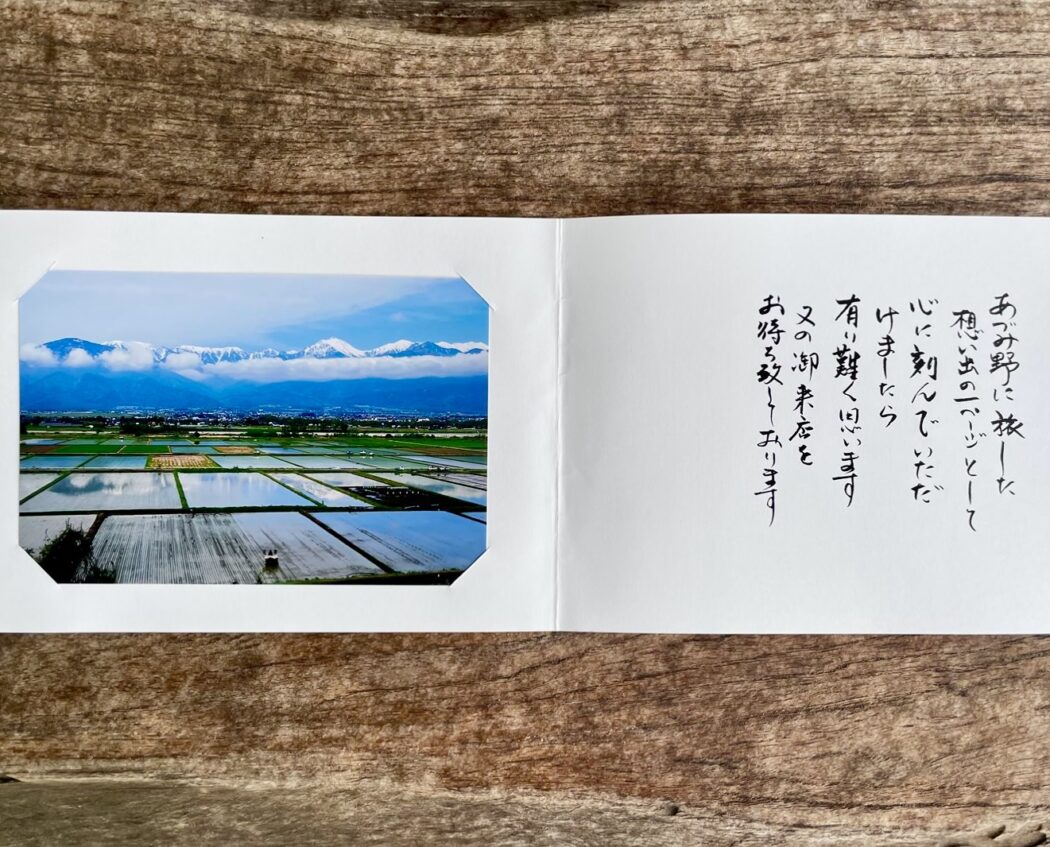 あづみ野に旅した
想い出の一ページとして
心に刻んでいただ
けましたら
有り難く思います
又の御来店を
お待ち致しております